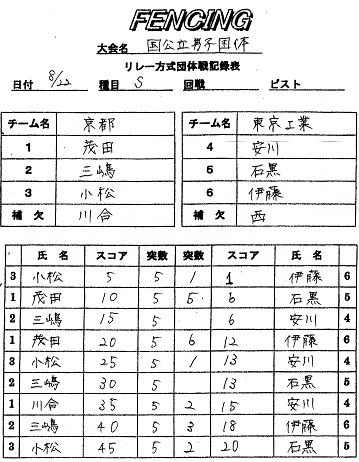 FENCING
大会名 国公立男子団体
リレー方式団体戦記録表
日付 8/22 種目 S 回戦 ピスト
チーム名 京都 チーム名 東京工業
1 茂田 4 安川
2 三嶋 5 石黒
3 小松 6 伊藤
補欠 川合 補欠 西
氏名 スコア 突数 突数 スコア 氏名
3 小松 5 5 1 1 伊藤 6
1 茂田 10 5 5 6 石黒 5
2 三嶋 15 5 6 安川 4
1 茂田 20 5 6 12 伊藤 6
3 小松 25 5 1 13 安川 4
2 三嶋 30 5 13 石黒 5
1 川合 35 5 2 15 安川 4
2 三嶋 40 5 3 18 伊藤 6
3 小松 45 5 2 20 石黒 5